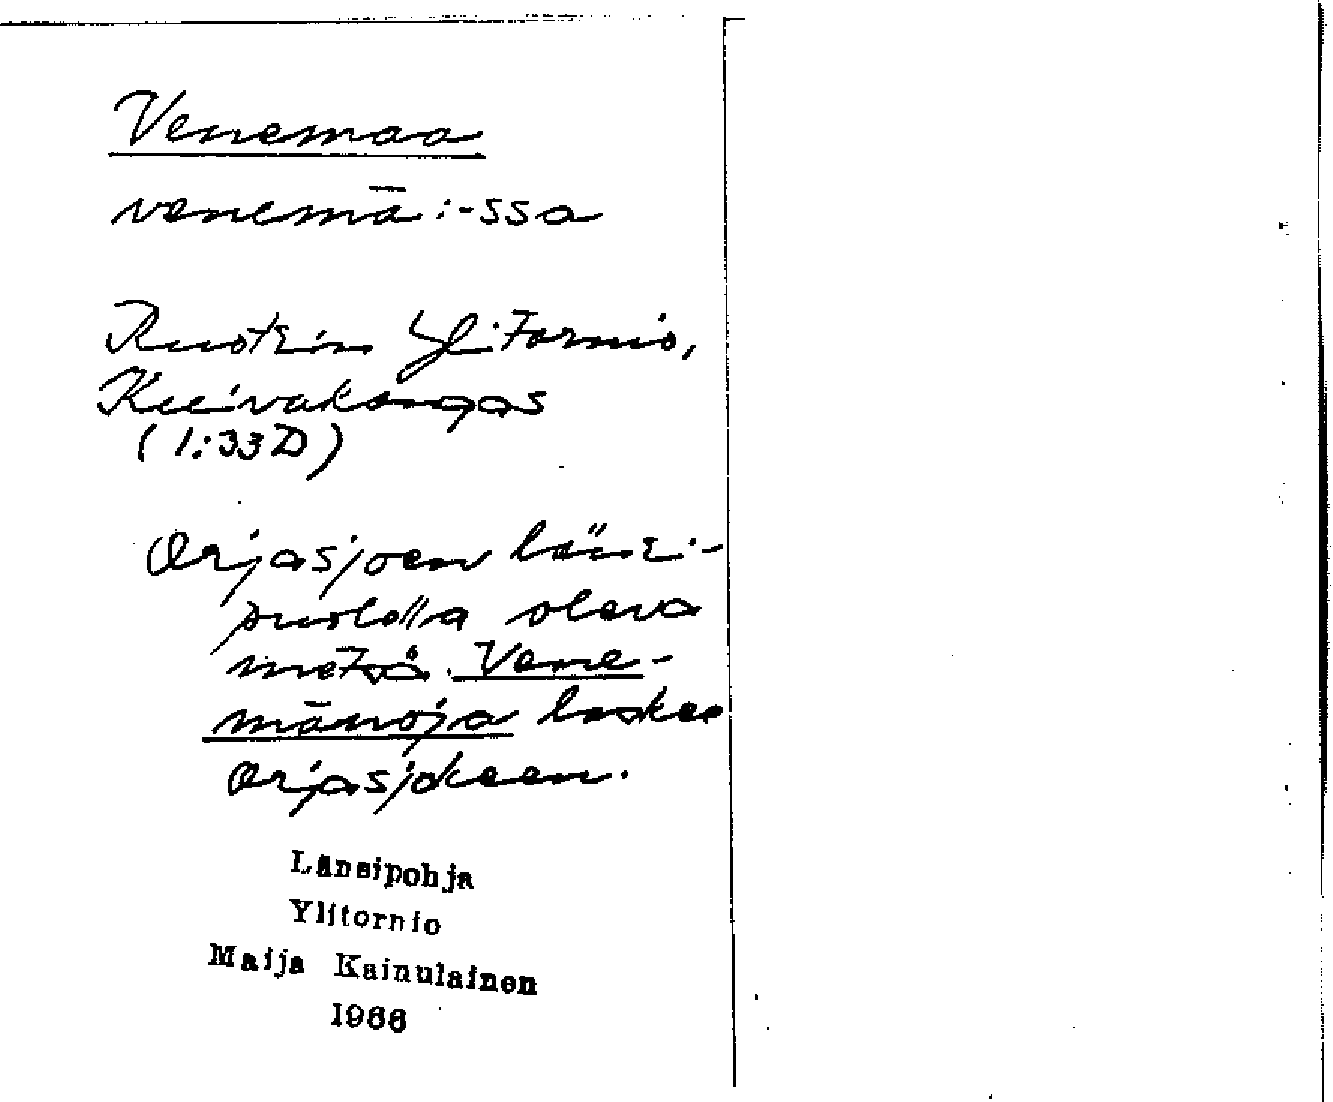 Venemaa
venemā: -ssa
Ruotsin Ylitornio,
Kuivakangas
(1:33D)
Orjasjoen länsi-
puolella oleva
metsä. Vene-
mānoja laskee
Orjasjokeen.
Länsipohja
Ylitornio
Maija Kainulainen
1966